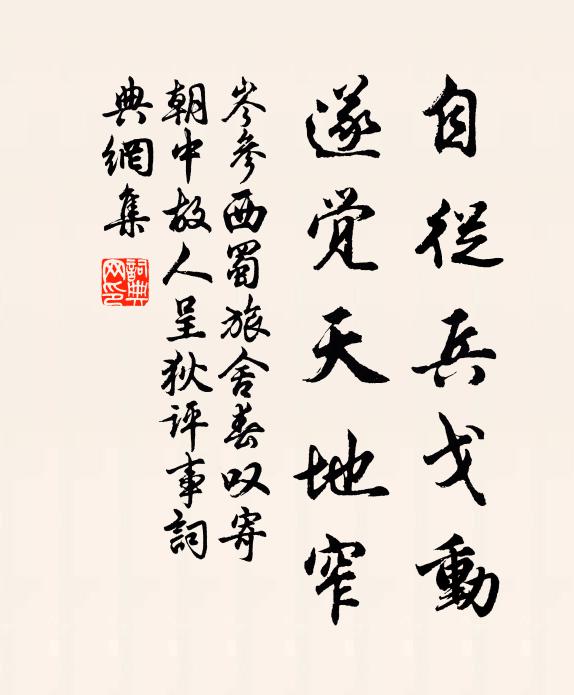 自從兵戈動
遂觉天地窄
岑參西蜀旅舍春叹寄
朝中故人呈狄评事詞
典網集
詞典网印